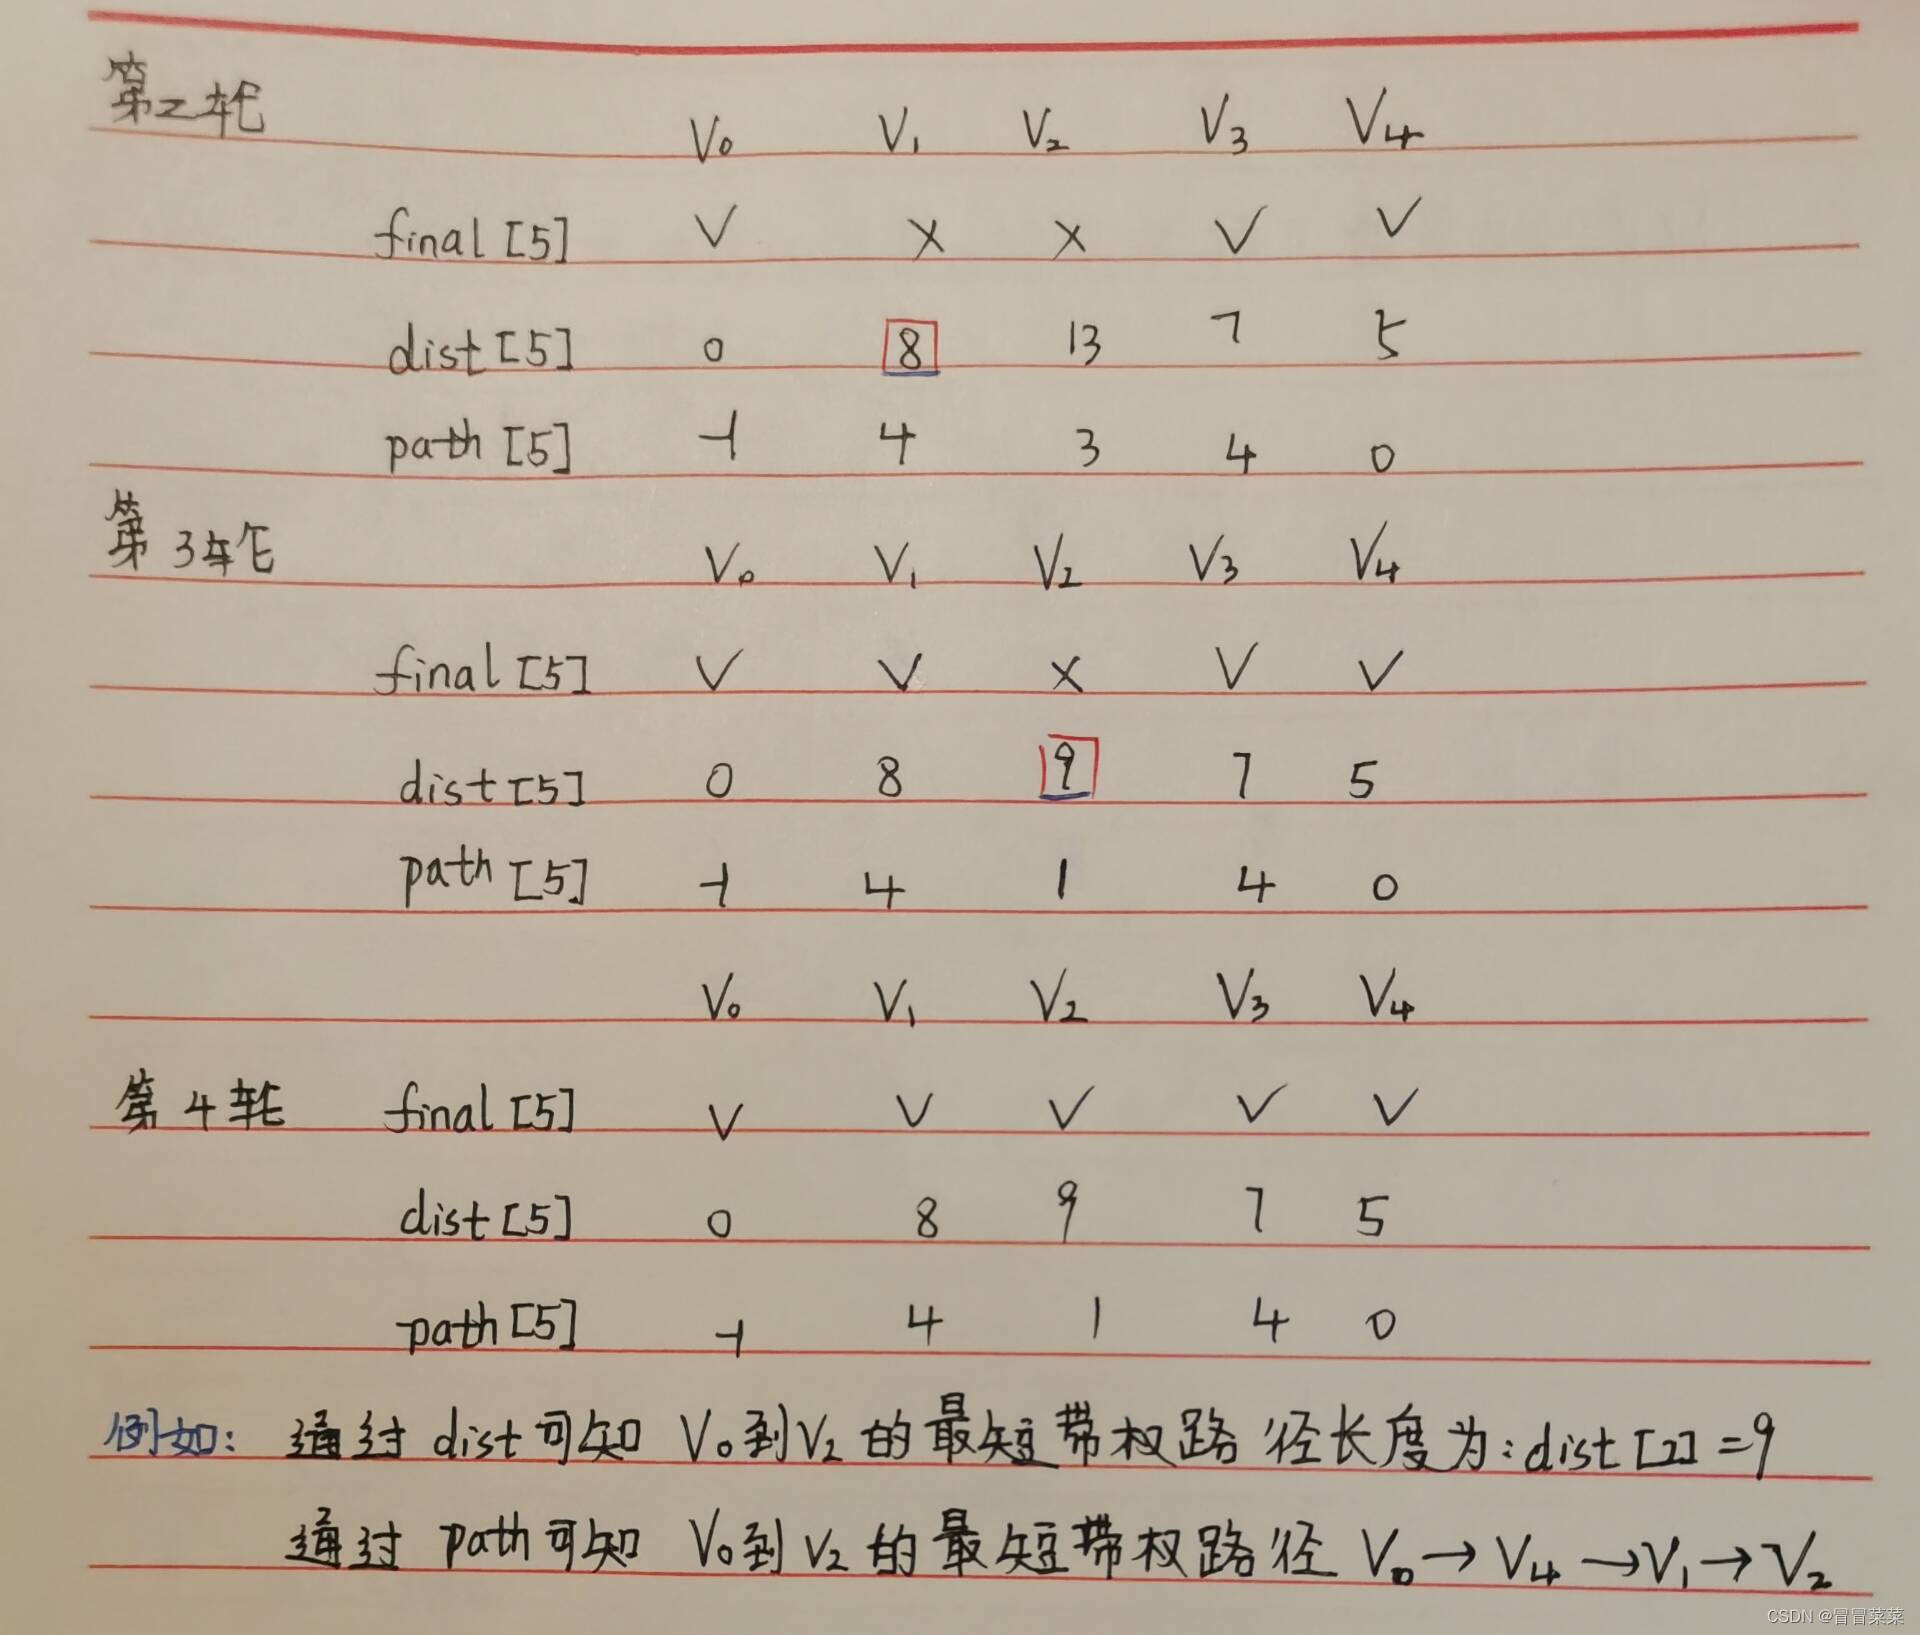 第2轮 V₀ V₁ V₂ V₃ V₄
final[5] √ × × √ √
dist[5] 0 8 13 7 5
path[5] -1 4 3 4 0
第3轮 V₀ V₁ V₂ V₃ V₄
final[5] √ √ × √ √
dist[5] 0 8 9 7 5
path[5] -1 4 1 4 0
V₀ V₁ V₂ V₃ V₄
第4轮 final[5] √ √ √ √ √
dist[5] 0 8 9 7 5
path[5] -1 4 1 4 0
例如: 通过 dist可知 V₀到V₂的最短带权路径长度为:dist[2]=9
通过 path可知 V₀到V₂的最短带权路径 V₀→V₄→V₁→V₂
CSDN @冒冒菜菜